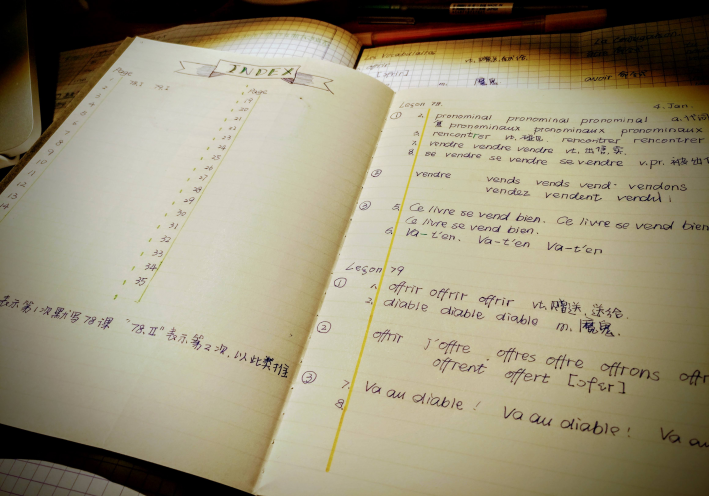 INDEX
Page
78.I 79.I
2
4
5
6
7
8
9
10
11
12
13
14
Page
19
20
21
22
23
24
25
26
27
28
29
30
31
32
33
34
35
表示第1次默写78课 "78.II"表示第2次,以此类推
avoir
Leçon 78. 4. Jan.
① 2. pronominal pronominal pronominal a.代词
pronominaux pronominaux pronominaux
rencontrer vt. rencontrer rencontrer
7. vendre vendre vendre vt. 出售,卖.
8. se vendre se vendre se vendre v.pr. 被出
② vendre vends vends vend. vendons
vendez vendent vendu
③ 5. Ce livre se vend bien. Ce livre se vend bien
Ce livre se vend bien.
6. Va-t'en. Va-t'en Va-t'en
Leçon 79
① 1. offrir offrir offrir vt.赠送,送给.
2. diable diable diable m. 魔鬼.
② offrir j'offre . offres offre offrons offr
offrent offert [ɔfɛr]
③ 7. Va au diable! Va au diable! Va au
8.